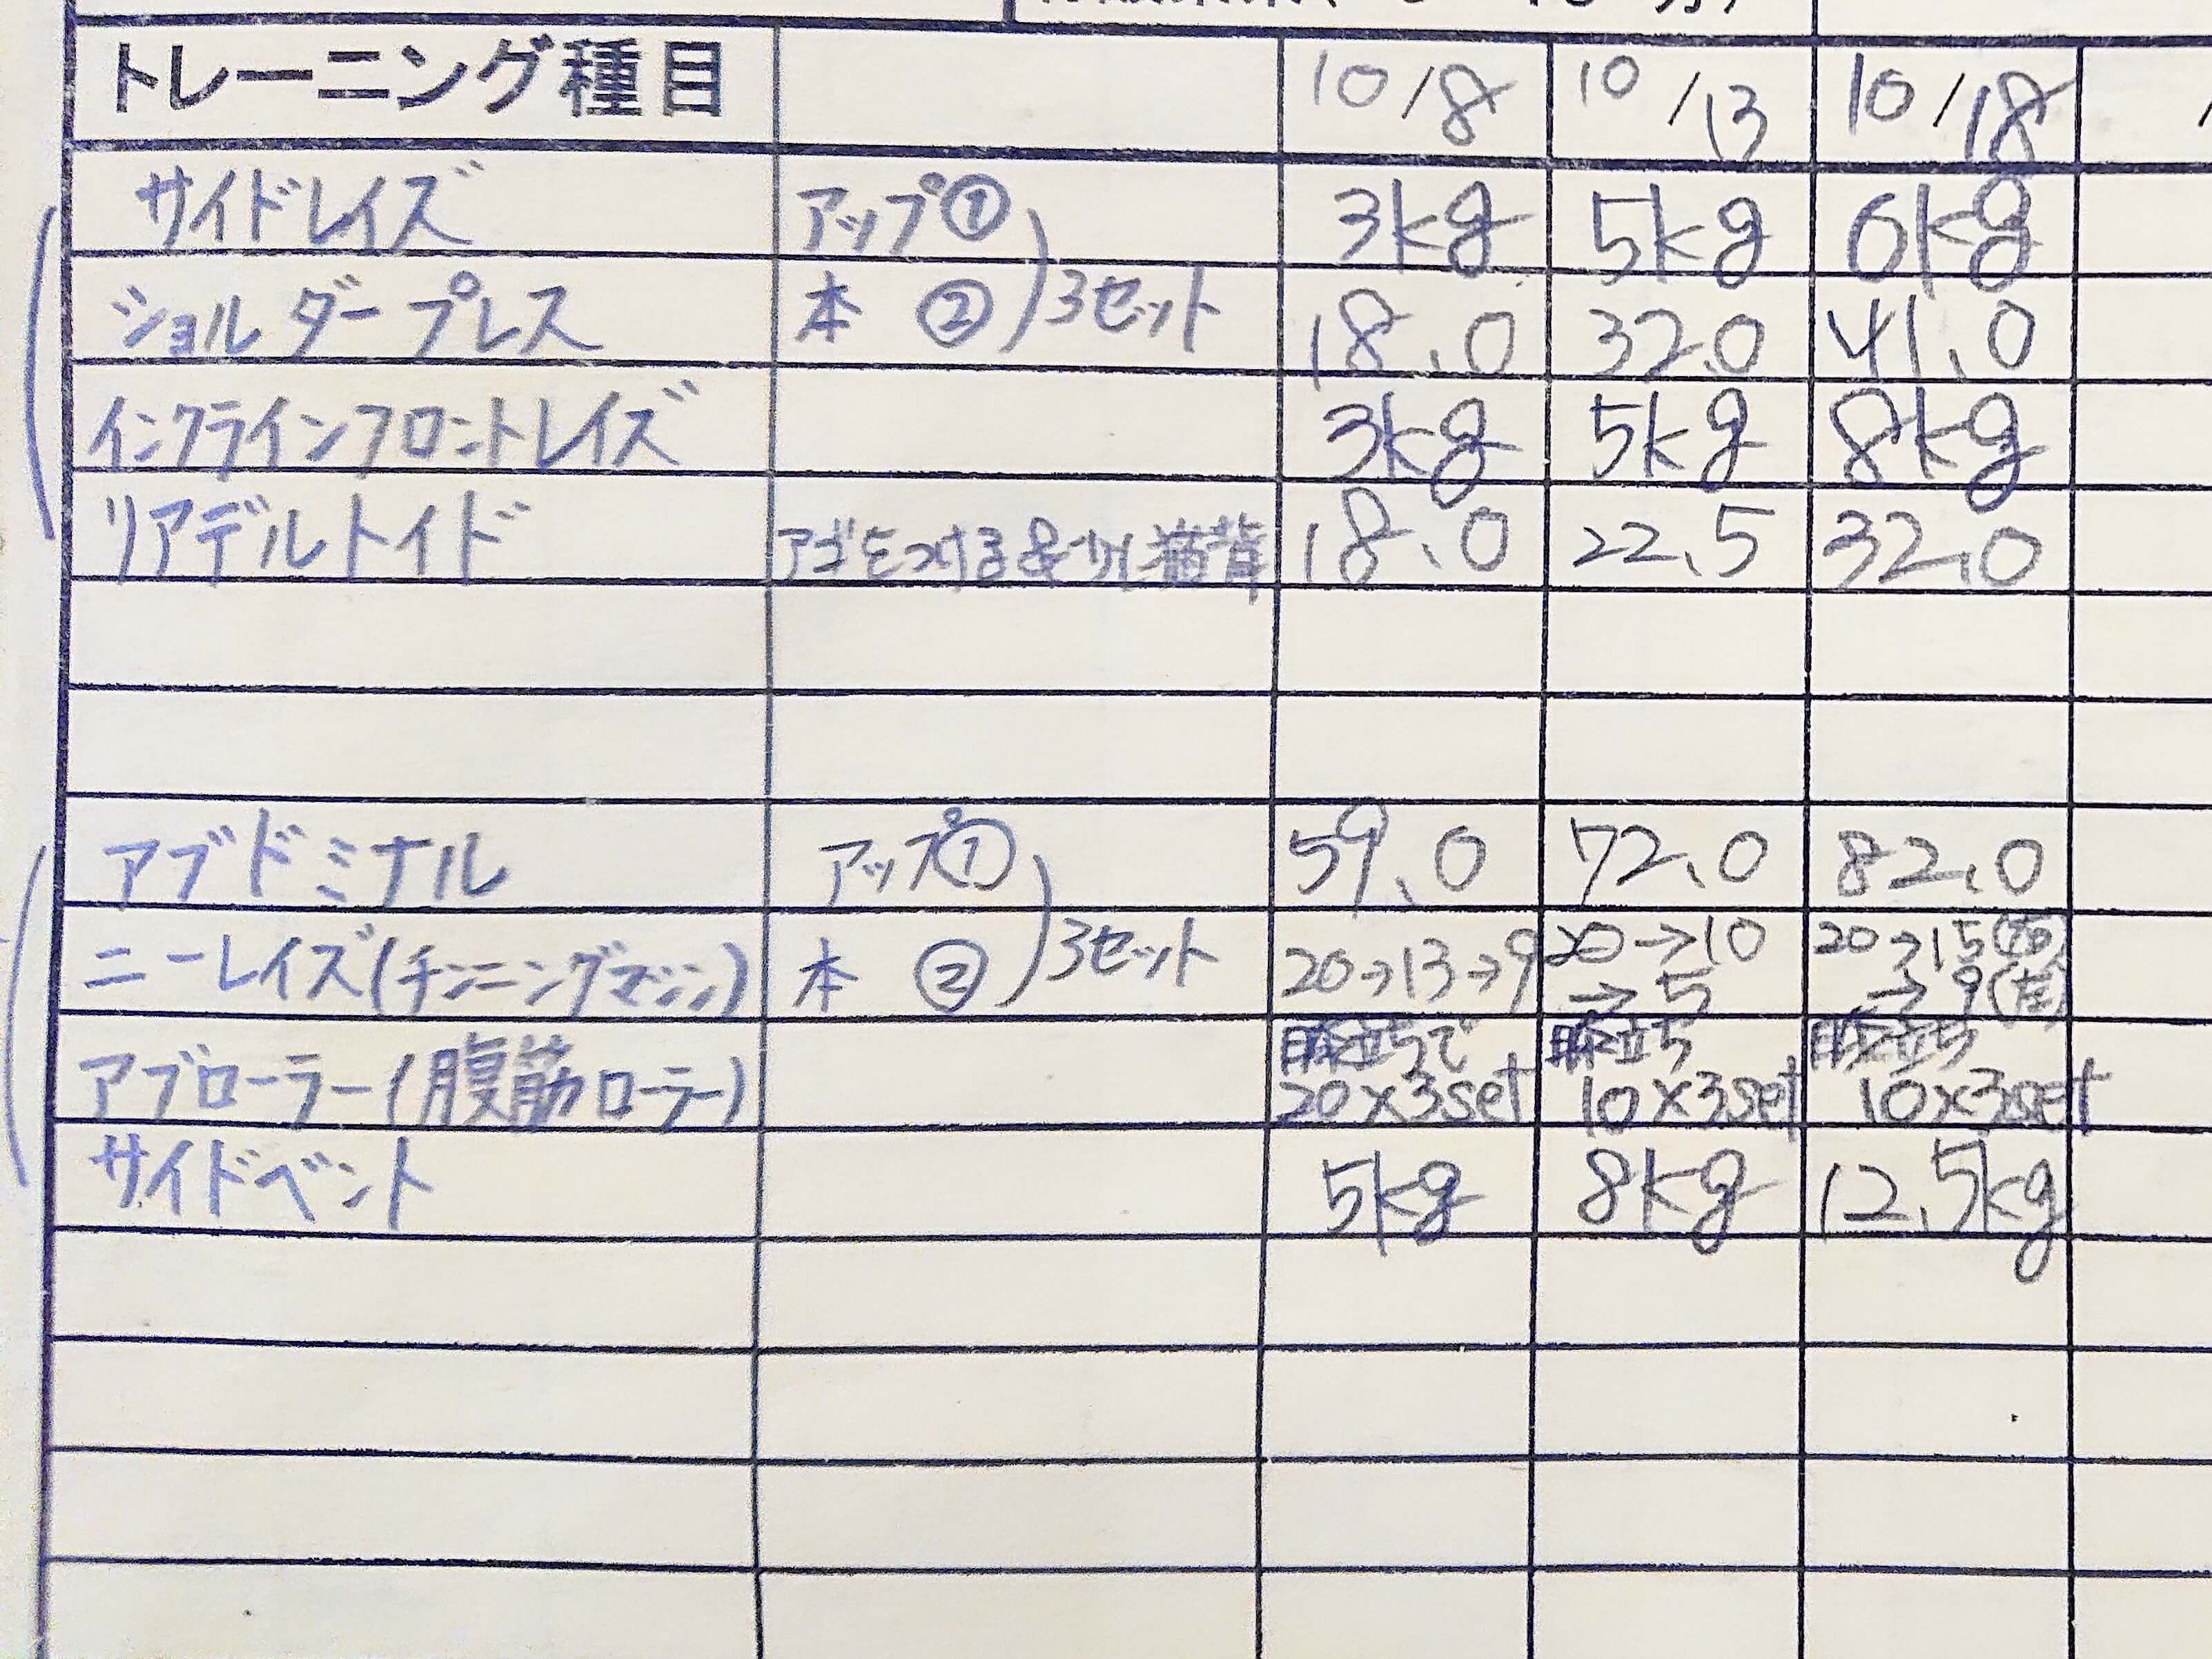 トレーニング種目 10/8 10/13 10/18
サイドレイズ アップ① 3kg 5kg 6kg
ショルダープレス 本 ② 3セット 18.0 32.0 41.0
インクラインフロントレイズ 3kg 5kg 8kg
リアデルトイド アゴをつける&少し猫背 18.0 22.5 32.0
アブドミナル アップ① 59.0 72.0 82.0
ニーレイズ(チンニングマシン) 本 ② 3セット 20→13→9 20→10 20→15(右)
→5 →9(左)
アブローラー(腹筋ローラー) 膝立ちで 膝立ち 膝立ち
20×3set 10×3set 10×3set
サイドベント 5kg 8kg 12.5kg